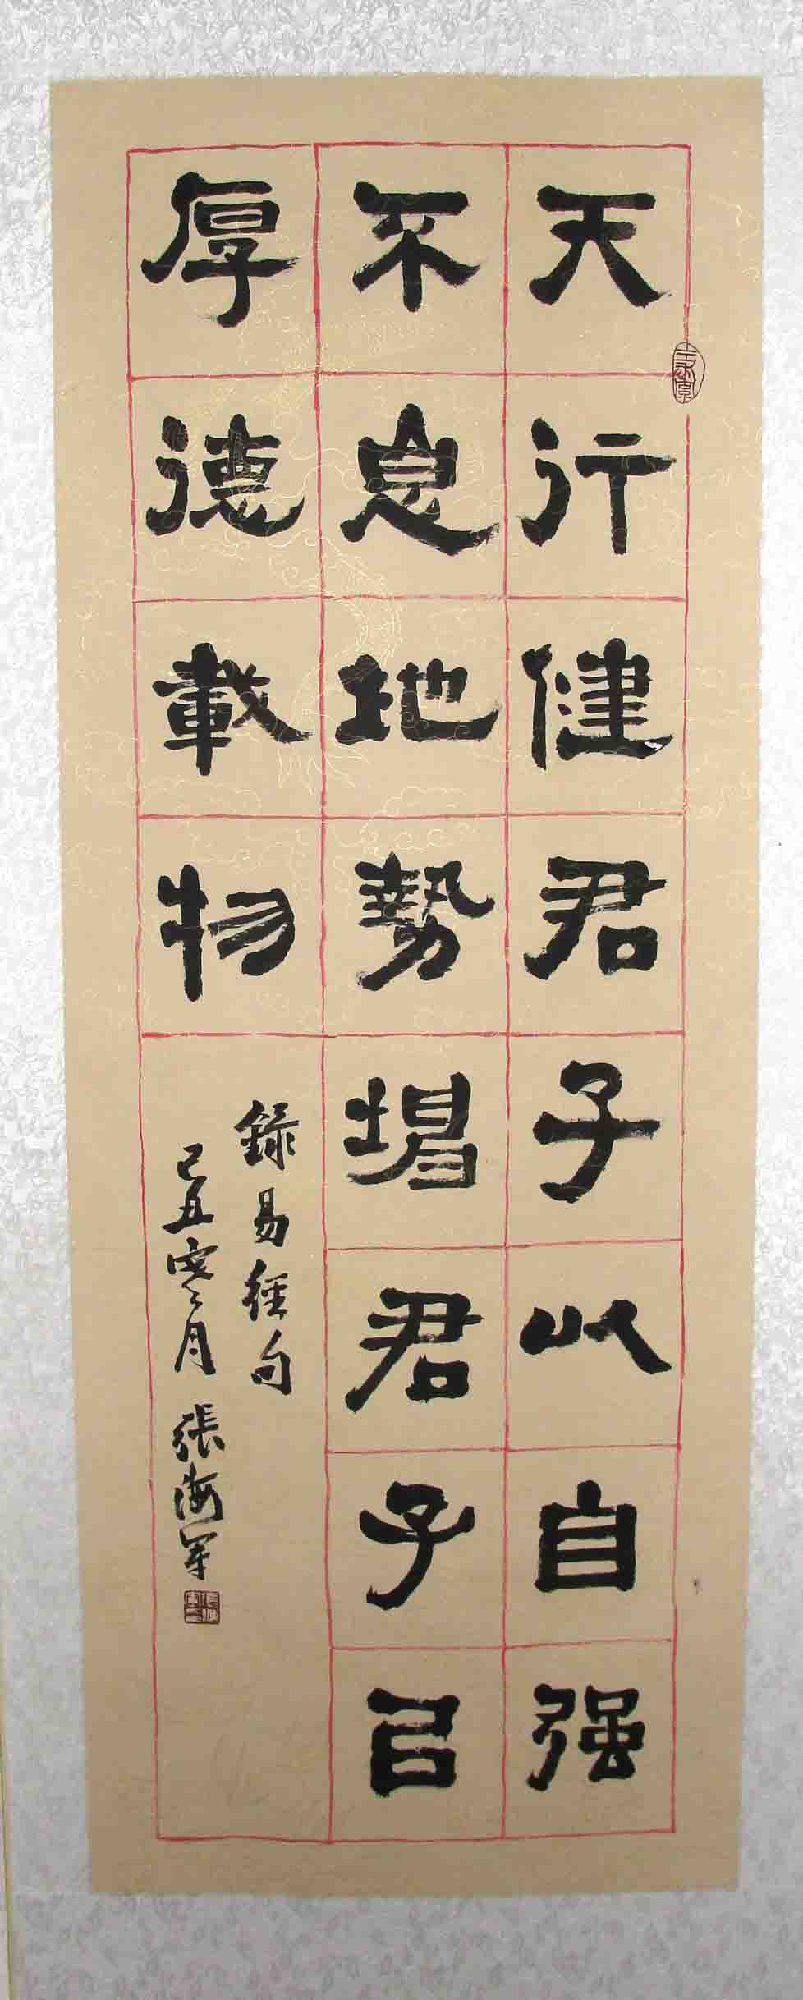 天行健君子以自强
不息地势坤君子以
厚德載物
錄易經句
己丑寒月張海军